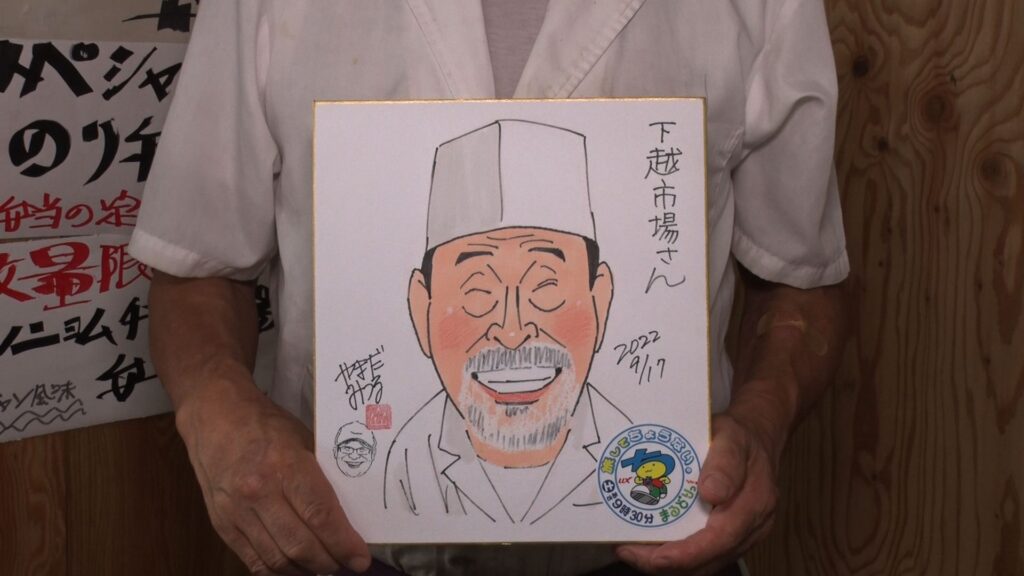 スペシャ
のり弁
弁当の定
数量限
弁
下越市場さん
2022
9/17
やまだ
みつる
旅してちょうだい。
UX
9時30分
まるどりっ！